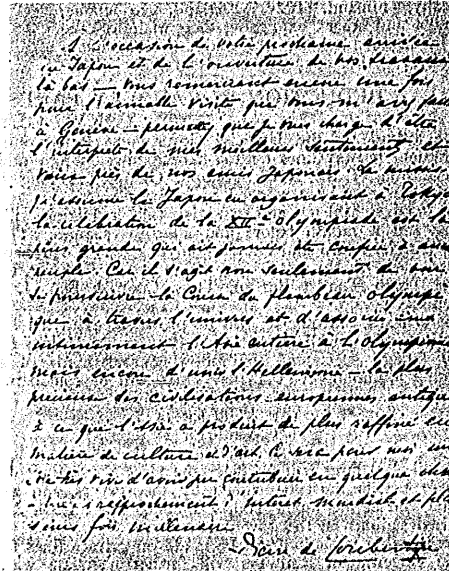 A l'occasion de votre prochaine arrivée
au Japon et de l'ouverture de vos travaux
là bas — vous remerciant encore une fois
pour l'aimable visite que vous m'avez faite
à Genève — permettez que je vous charge d'être
l'interprète de mes meilleurs sentiments et
vœux près de nos amis Japonais. La mission
qu'assume le Japon en organisant à Tokyo
la célébration de la XIIe Olympiade est la
plus grande qui ait jamais été confiée à aucun
peuple. Car il s'agit non seulement de voir
se poursuivre la Course du flambeau Olympique
à travers l'univers et d'associer
intimement l'Asie entière à l'Olympisme
mais encore d'unir l'Hellénisme — la plus
précieuse des civilisations européennes antiques
à ce que l'Asie a produit de plus raffiné en
matière de culture et d'art. Ce sera pour moi une
joie très vive d'avoir pu contribuer en quelque chose
à ce rapprochement d'intérêt mondial et plu
sieurs fois millénaire
Pierre de Coubertin